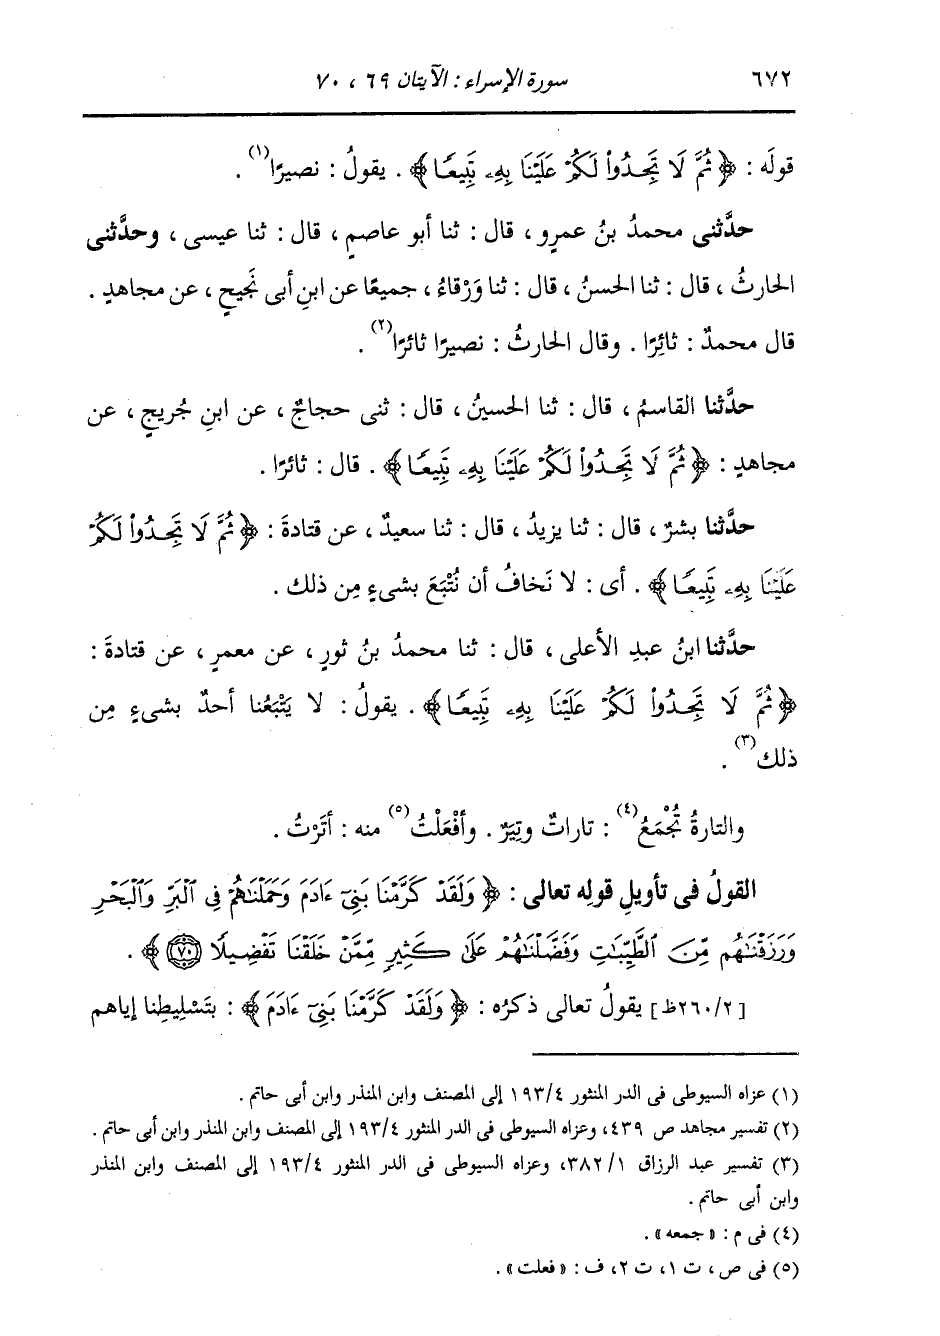 ٦٧٢ سورة الإسراء : الآيتان ٦٩ ، ٧٠
قولَه : ﴿ ثُمَّ لَا تَجِدُوا۟ لَكُمْ عَلَيْنَا بِهِۦ تَبِيعًا ﴾ . يقولُ : نصيرًا(١) .
حدَّثنى محمدُ بنُ عمرٍو ، قال : ثنا أبو عاصمٍ ، قال : ثنا عيسى ، وحدَّثنى
الحارثُ ، قال : ثنا الحسنُ ، قال : ثنا وَرْقاءُ ، جميعًا عن ابنِ أبى نَجيحٍ ، عن مجاهدٍ .
قال محمدٌ : ثائِرًا . وقال الحارثُ : نصيرًا ثائرًا(٢) .
حدَّثنا القاسمُ ، قال : ثنا الحسينُ ، قال : ثنى حجاجٌ ، عن ابنِ جُريجٍ ، عن
مجاهدٍ : ﴿ ثُمَّ لَا تَجِدُوا۟ لَكُمْ عَلَيْنَا بِهِۦ تَبِيعًا ﴾ . قال : ثائرًا .
حدَّثنا بشرٌ ، قال : ثنا يزيدُ ، قال : ثنا سعيدٌ ، عن قتادةَ : ﴿ ثُمَّ لَا تَجِدُوا۟ لَكُمْ
عَلَيْنَا بِهِۦ تَبِيعًا ﴾ . أى : لا نَخافُ أن نُتْبَعَ بشىءٍ مِن ذلك .
حدَّثنا ابنُ عبدِ الأعلى ، قال : ثنا محمدُ بنُ ثورٍ ، عن معمرٍ ، عن قتادةَ :
﴿ ثُمَّ لَا تَجِدُوا۟ لَكُمْ عَلَيْنَا بِهِۦ تَبِيعًا ﴾ . يقولُ : لا يَتْبَعُنا أحدٌ بشىءٍ مِن
ذلك(٣) .
والتارةُ تُجْمَعُ(٤) : تاراتٌ وتِيَرٌ . وأفْعَلْتُ(٥) منه : أتَرْتُ .
القولُ فى تأويلِ قولِه تعالى : ﴿ وَلَقَدْ كَرَّمْنَا بَنِىٓ ءَادَمَ وَحَمَلْنَٰهُمْ فِى ٱلْبَرِّ وَٱلْبَحْرِ
وَرَزَقْنَٰهُم مِّنَ ٱلطَّيِّبَٰتِ وَفَضَّلْنَٰهُمْ عَلَىٰ كَثِيرٍ مِّمَّنْ خَلَقْنَا تَفْضِيلًا ٧٠ ﴾ .
[٢/٢٦٠ظ] يقولُ تعالى ذكرُه : ﴿ وَلَقَدْ كَرَّمْنَا بَنِىٓ ءَادَمَ ﴾ : بتَسْلِيطِنا إياهم
(١) عزاه السيوطى فى الدر المنثور ١٩٣/٤ إلى المصنف وابن المنذر وابن أبى حاتم .
(٢) تفسير مجاهد ص ٤٣٩، وعزاه السيوطى فى الدر المنثور ١٩٣/٤ إلى المصنف وابن المنذر وابن أبى حاتم .
(٣) تفسير عبد الرزاق ١/ ٣٨٢، وعزاه السيوطى فى الدر المنثور ١٩٣/٤ إلى المصنف وابن المنذر
وابن أبى حاتم .
(٤) فى م : « جمعه » .
(٥) فى ص ، ت ١، ت ٢، ف : « فعلت » .